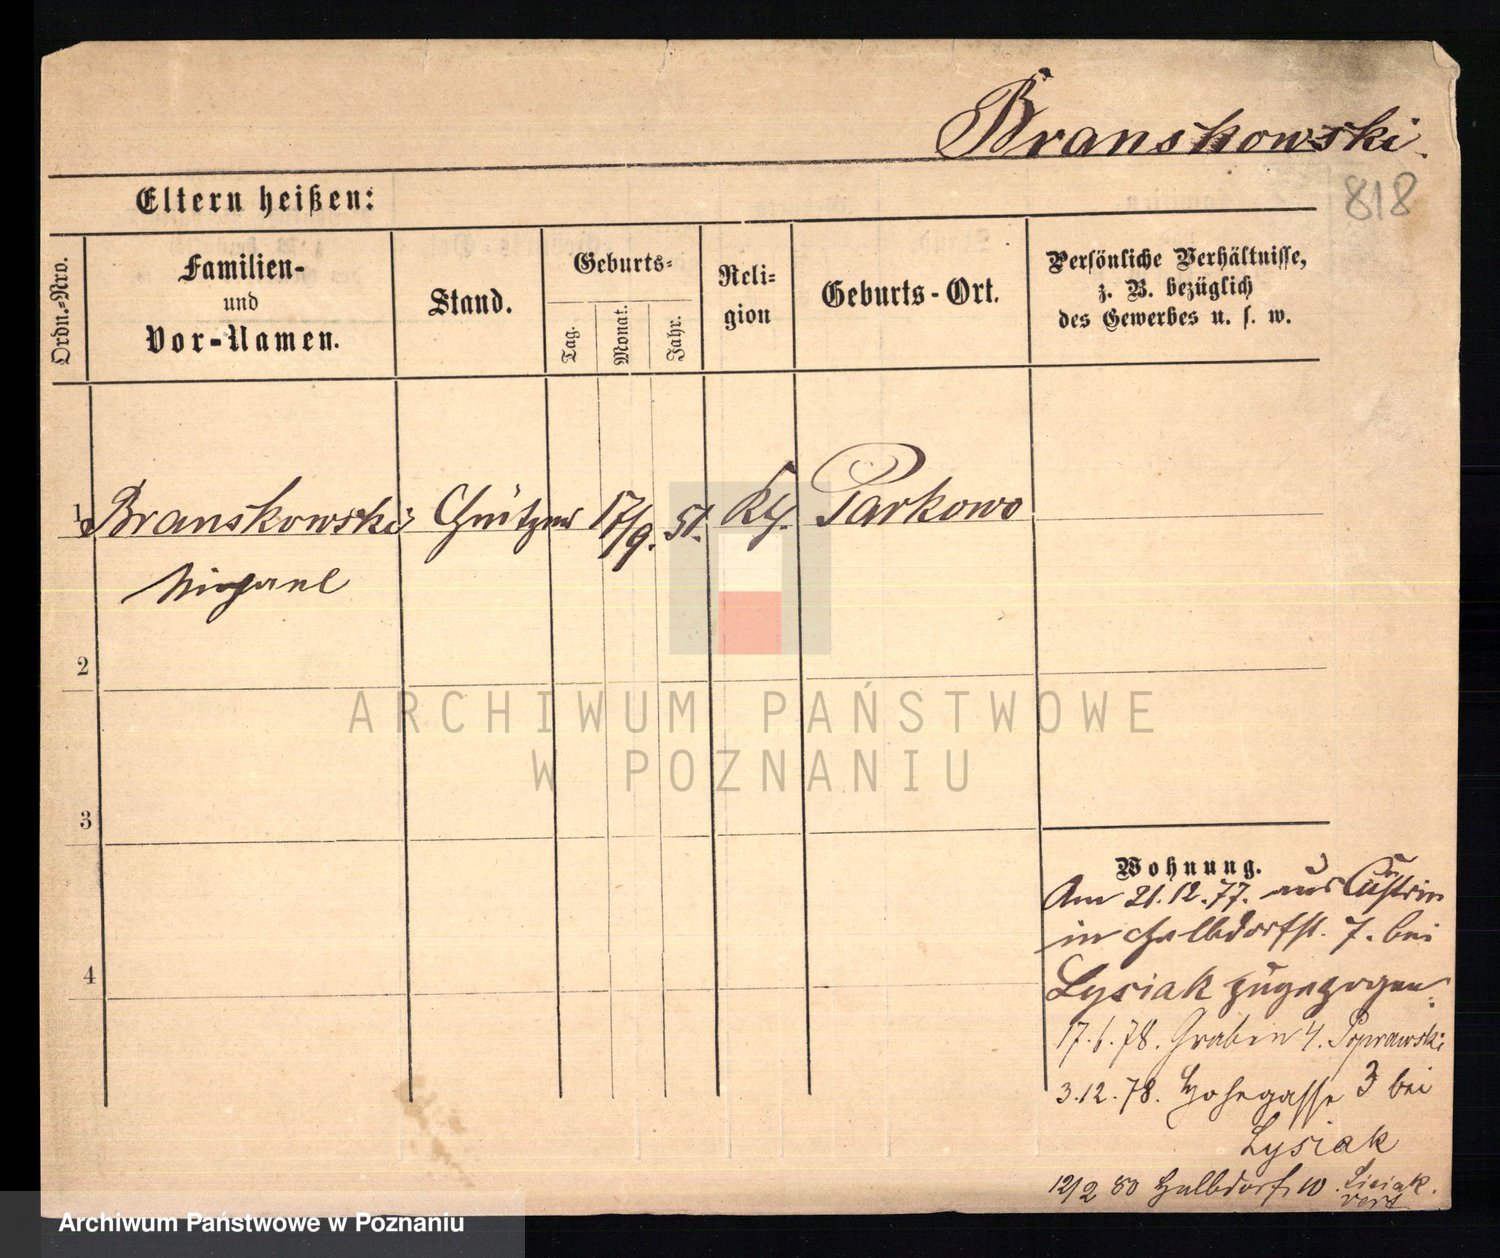 Branskowski
818
Eltern heißen:
Ordn.=Nro.
Familien-
und
Vor-Namen.
Stand.
Geburts=
Tag.
Monat.
Jahr.
Reli=
gion
Geburts-Ort.
Persönliche Verhältnisse,
z. B. bezüglich
des Gewerbes u. s. w.
1
Branskowski
17/9. 51.
Kth.
Parkowo
2
3
4
Wohnung.
Am 21.12.77. aus Cüstrin
in Halbdorfst. 7. bei
Lysiak zugezogen.
17.6.78. Graben 4. Poprawski
3.12.78. Hohegasse 3 bei
Lysiak
12/2 80 Halbdorf 10. Liciak.
ARCHIWUM PAŃSTWOWE
W POZNANIU
Archiwum Państwowe w Poznaniu